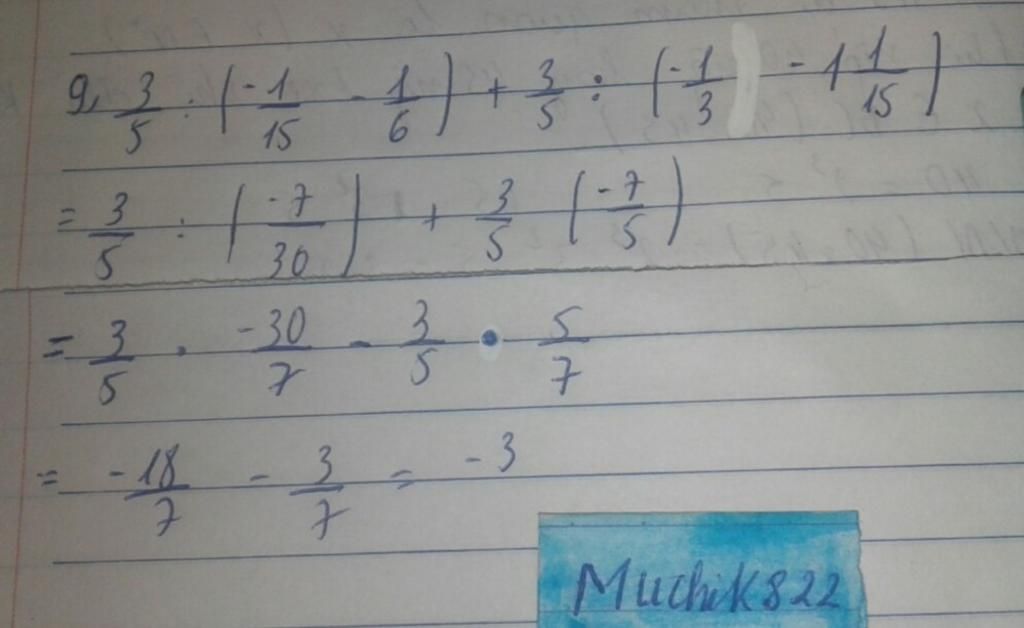 9, 3/5 : (-1/15 - 1/6) + 3/5 : (-1/3 - 1 1/15)
= 3/5 : (-7/30) + 3/5 (-7/5)
= 3/5 . -30/7 - 3/5 . 5/7
= -18/7 - 3/7 = -3
Muchik822